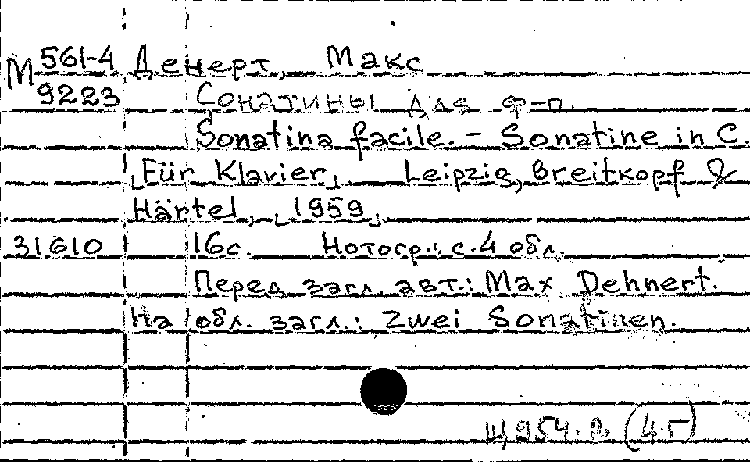 М 561-4 Денерт, Макс
9223 Сонатины для ф-п.
Sonatina facile. – Sonatine in C.
[Für Klavier] Leipzig, Breitkopf &
Härtel, [1959]
31610 16с. Нотогр.: с. 4 обл.
Перед загл. авт.: Max Dehnert.
На обл. загл.: Zwei Sonatinen.
(4г)